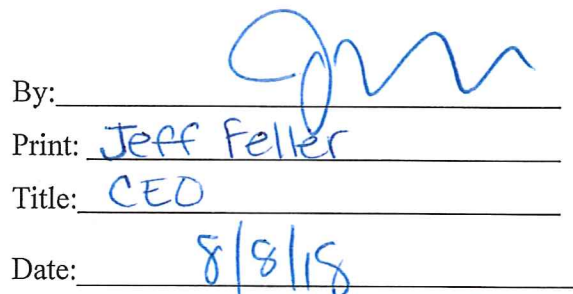 By:
Print: Jeff Feller
Title: CEO
Date: 8/8/18